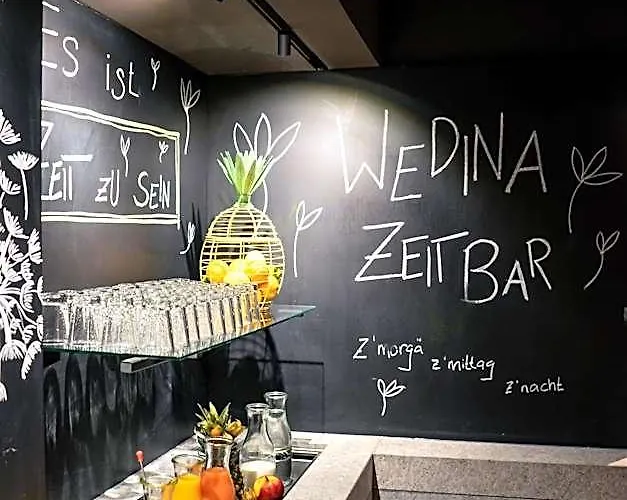 Es ist
ZEIT ZU SEIN
WEDINA
ZEITBAR
Z'morgä z'mittag
z'nacht